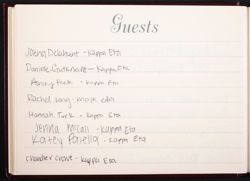 Guests
Joena Delahunt - Kappa Eta
Danielle Gutknecht - Kappa Eta
Penny Park - Kappa Eta
Rachel Long - Kappa Eta
Hannah Turk - Kappa Eta
Jenna McCall - Kappa Eta
Katey Paiella - Kappa Eta
Chandler Crovt - Kappa Eta